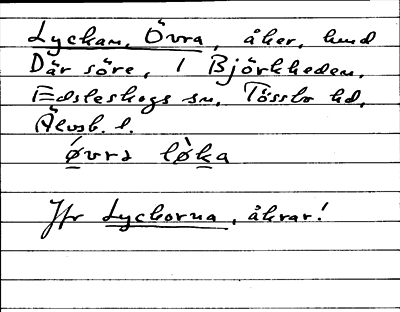 Lyckan, Övra, åker, hmd
Där söre, 1 Björkheden,
Edsleskogs sn, Tössbo hd,
Älvsb. l.
øvra løka
Jfr Lyckorna, åkrar!